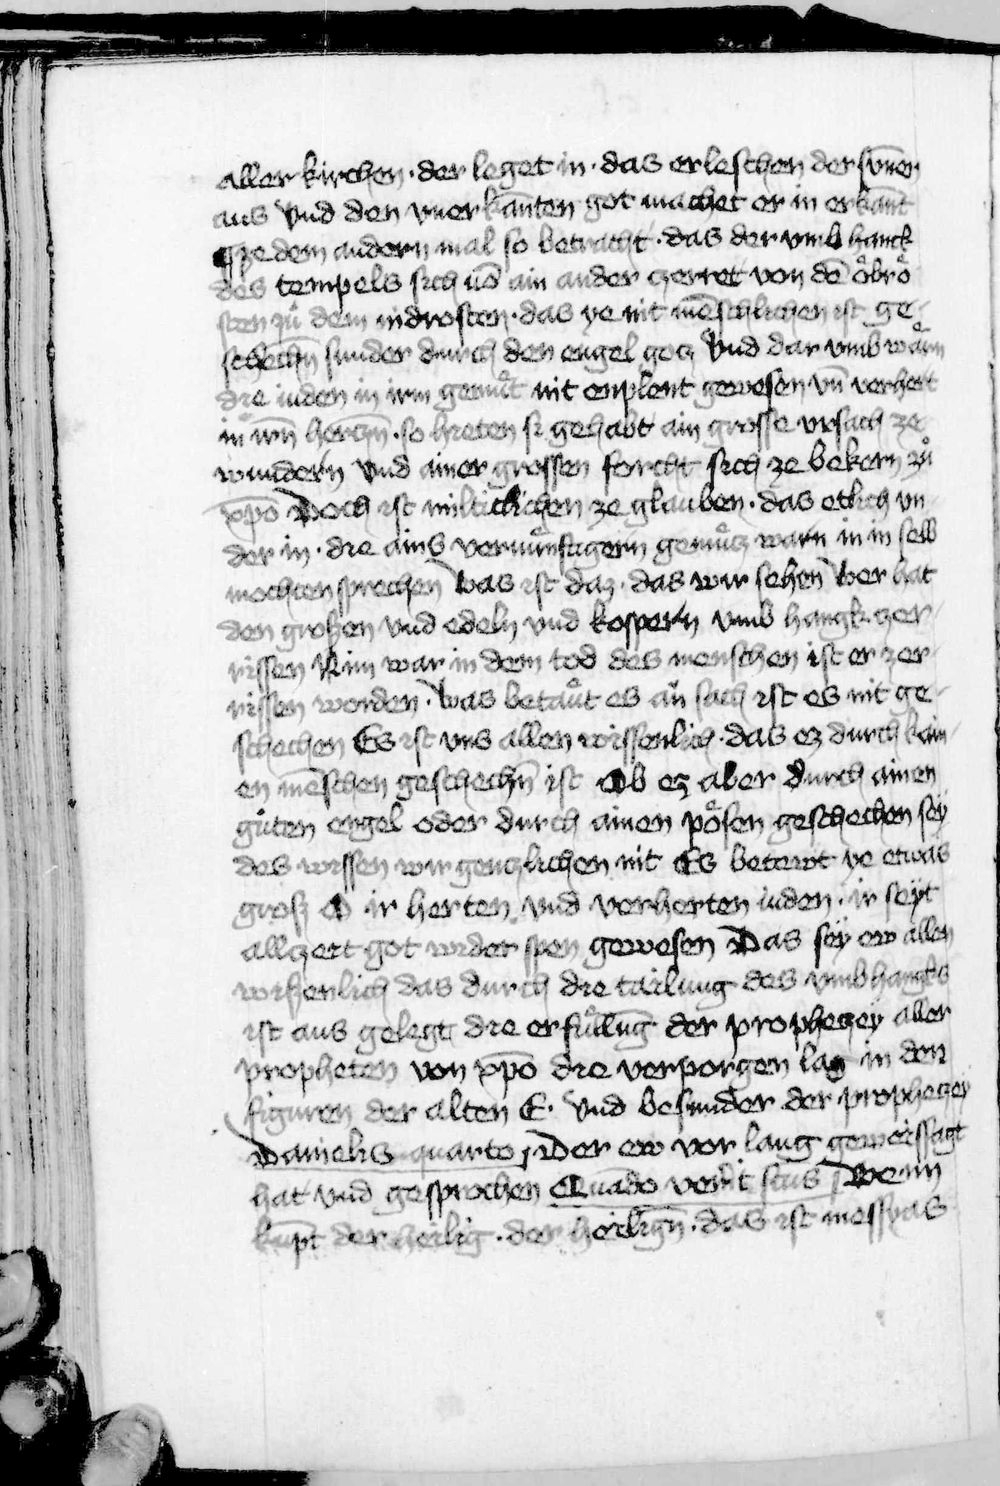 aller kirchen · der leget in · das erleschen der sun̄en
aus vnd den vnerkānten got machet er in erkānt
¶ ze dem andern mal so betracht · das der vmb hanck
des tempels sich uō ain ander zerret von dē oͤbroͤ
sten zuͦ dem indrosten · das ye nit mēschlichen ist ge-
schechn̄ sunder durch den engel gocz Vnd dar vmb waͤrn
die iuden in irm gemuͤt nit enplent gewesen vn̄ verhert
in irn̄ herczn̄ · so hieten si gehabt ain grosse vrsach ze
wundern vnd ainer grossen forcht sich ze bekern zuͦ
xp̄o Doch ist miltiklichen ze glauben · das etlich vn-
der in · die ains vernuͤnftigern gemuͤcz warn in in selb
mochten sprechen Was ist daz · das wir sehen Wer hat
den grossen vnd edeln vnd kospern vmb hangk zer-
rissen Nim war in dem tod des menschen ist er zer-
rissen worden · Was betaͤut es an sach ist es nit ge-
schechen Es ist vns allen wissenlich · das ez durch kain-
en mēschen geschechn̄ ist Ob ez aber durch ainen
guͤten engel oder durch ainen poͤsen geschechen seÿ
des wissen wir genczlichen nit Es betewt ye etwas
gross O ir herten vnd verherten iuden · ir seÿt
allczeit got wider spen gewesen Das seÿ ew allen
wissenlich das durch die tailung des vmbhangks
ist aus gelegt die erfuͤllūg der prophecey aller
propheten von xp̄o die verporgen lag in den
figuren der alten E · Vnd besunder der prophecey
Danielis quarto Der ew vor lang geweissagt
hat vnd gesprochen Quādo ven̄it sc̄us Wenn
kūpt der heilig · der heilign̄ · das ist messyas